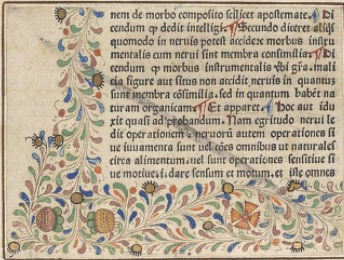 nem de morbo composito scilicet apostemate. Di
cendum ꝙ dedit intelligi. Secundo diceret aliqs
quomodo in neruis potest accidere morbus instru
mentalis cum nerui sint membra consimilia. Di
cendum ꝙ morbus instrumentalis vbi gra. mali
cia figure aut situs non accidit neruis in quantum
sunt membra cōsimilia. sed in quantum habēt na
turam organicam. Et apparet. Hoc aut idu
xit quasi ad probandum. Nam egritudo nerui le
dit operationem neruorū autem operationes si
ue iuuamenta sunt uel cōes omnibus ut naturales
circa alimentum. uel sunt operationes sensitiue si
ue motiue. i. dare sensum et motum. et iste omnes